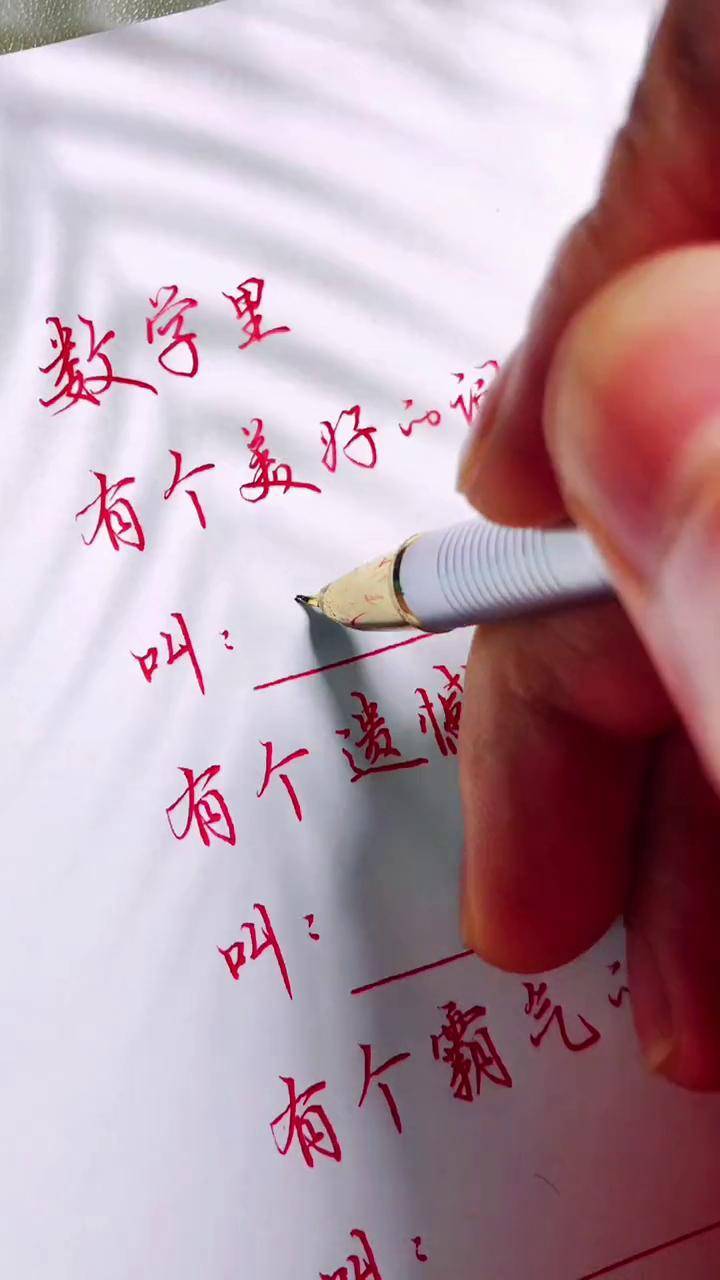 数学里
有个美好的词
叫：
有个遗憾
叫：
有个霸气的
叫：